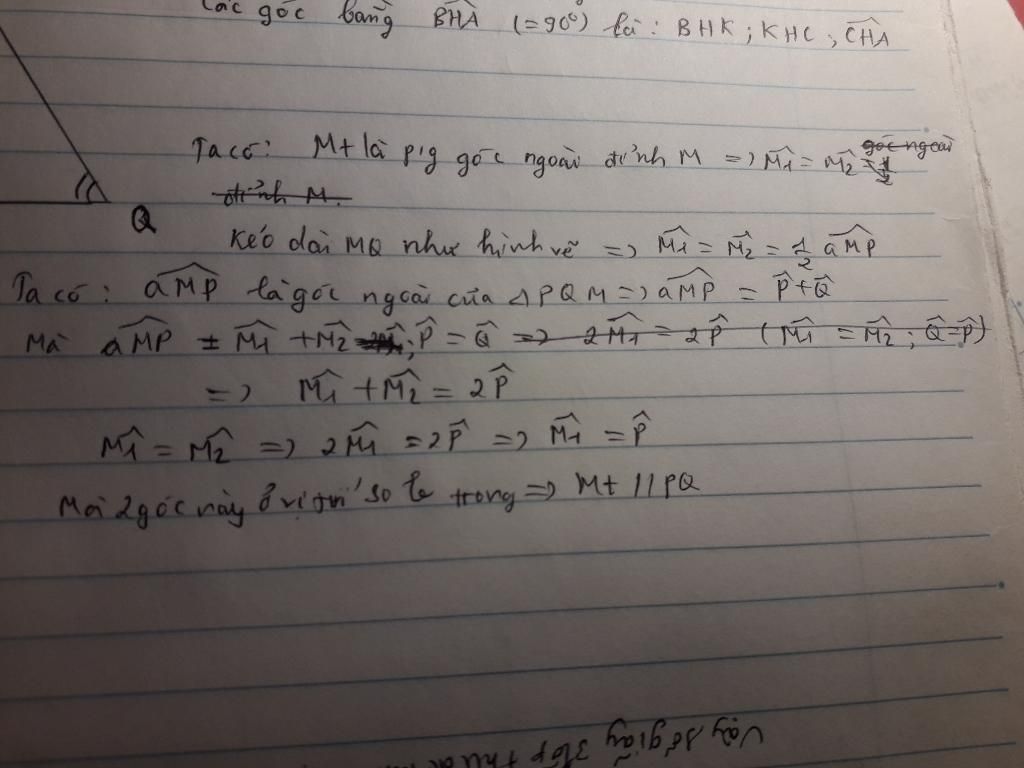 Các góc bằng BHA (=90°) là: BHK; KHC; CHA
Ta có: Mt là p/g góc ngoài đỉnh M => M1 = M2 góc ngoài
đỉnh M.
Q
Kéo dài MQ như hình vẽ => M1 = M2 = 1/2 aMP
Ta có: aMP là góc ngoài của △PQM => aMP = P+Q
Mà aMP = M1 + M2 ; P = Q => 2M1 = 2P (M1 = M2; Q=P)
=> M1 + M2 = 2P
M1 = M2 => 2M1 = 2P => M1 = P
Mà 2 góc này ở vị trí so le trong => Mt // PQ
Vậy số giấy lớp